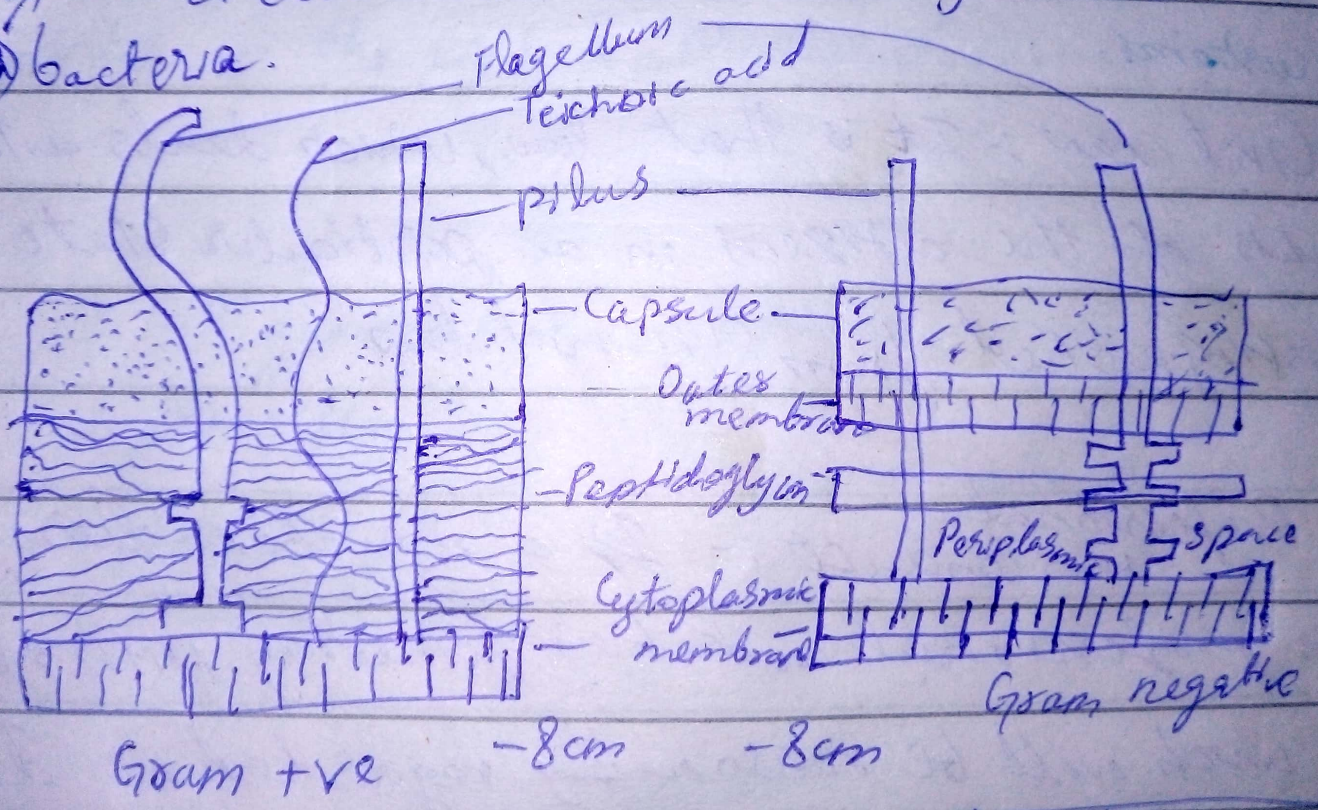 bacteria.
Flagellum
Teichoic acid
pilus
Capsule
Outer
membrane
Peptidoglycan
Periplasmic space
Cytoplasmic
membrane
Gram negative
-8cm -8cm
Gram +ve